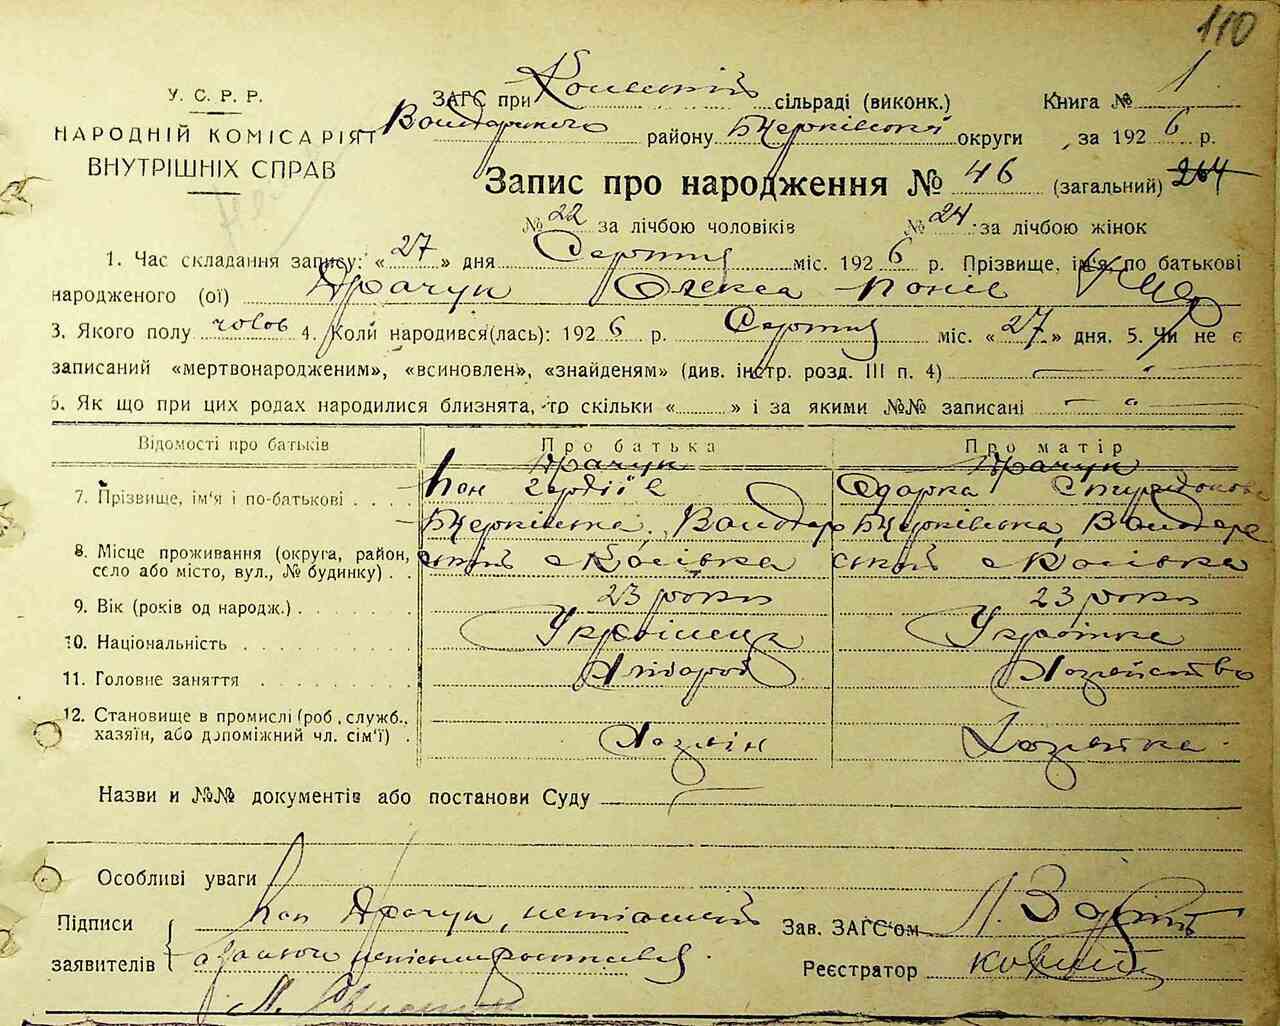 110
У. С. Р. Р.
НАРОДНІЙ КОМІСАРІЯТ
ВНУТРІШНІХ СПРАВ
ЗАГС при сільраді (виконк.) Книга № 1
Володарського району Бцерківської округи за 1926 р.
Запис про народження № 46 (загальний) 264
№ 22 за лічбою чоловіків № 24 за лічбою жінок
1. Час складання запису: «27» дня Серпня міс. 1926 р. Прізвище, ім'я по батькові
народженого (ої) Драчук Олекса
3. Якого полу чолов 4. Коли народився(лась): 1926 р. Серпня міс. «27» дня. 5. Чи не є
записаний «мертвонародженим», «всиновлен», «знайденям» (див. інстр. розд. III п. 4) —"—
6. Як що при цих родах народилися близнята, то скільки «......» і за якими №№ записані —"—
Відомості про батьків Про батька Про матір
Драчук Драчук
7. Прізвище, ім'я і по-батькові Кон Гордіїв Одарка Спиридонова
Бцерківська, Володар Бцерківська, Володаре
8. Місце проживання (округа, район,
село або місто, вул., № будинку) ський с Косівка ський с Косівка
9. Вік (років од народж.) 23 роки 23 роки
10. Національність Українець Українка
11. Головне заняття Хлібороб Хозяйство
12. Становище в промислі (роб., служб.,
хазяїн, або допоміжний чл. сім'ї) Хозяін Хозяйка
Назви и №№ документів або постанови Суду —
Особливі уваги
Підписи Кон Драчук, неписьмений
заявителів
Зав. ЗАГС'ом
Реєстратор